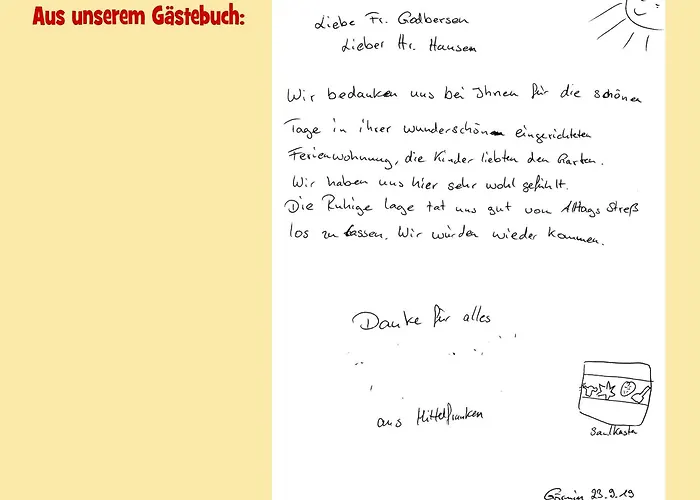 Aus unserem Gästebuch:
Liebe Fr. Godbersen
Lieber Hr. Hansen
Wir bedanken uns bei Ihnen für die schönen
Tage in ihrer wunderschön eingerichteten
Ferienwohnung, die Kinder liebten den Garten.
Wir haben uns hier sehr wohl gefühlt.
Die Ruhige Lage tat uns gut vom Alltags Streß
los zu lassen. Wir würden wieder kommen.
Danke für alles
aus Mittelfranken
Sandkasten
23.9.19